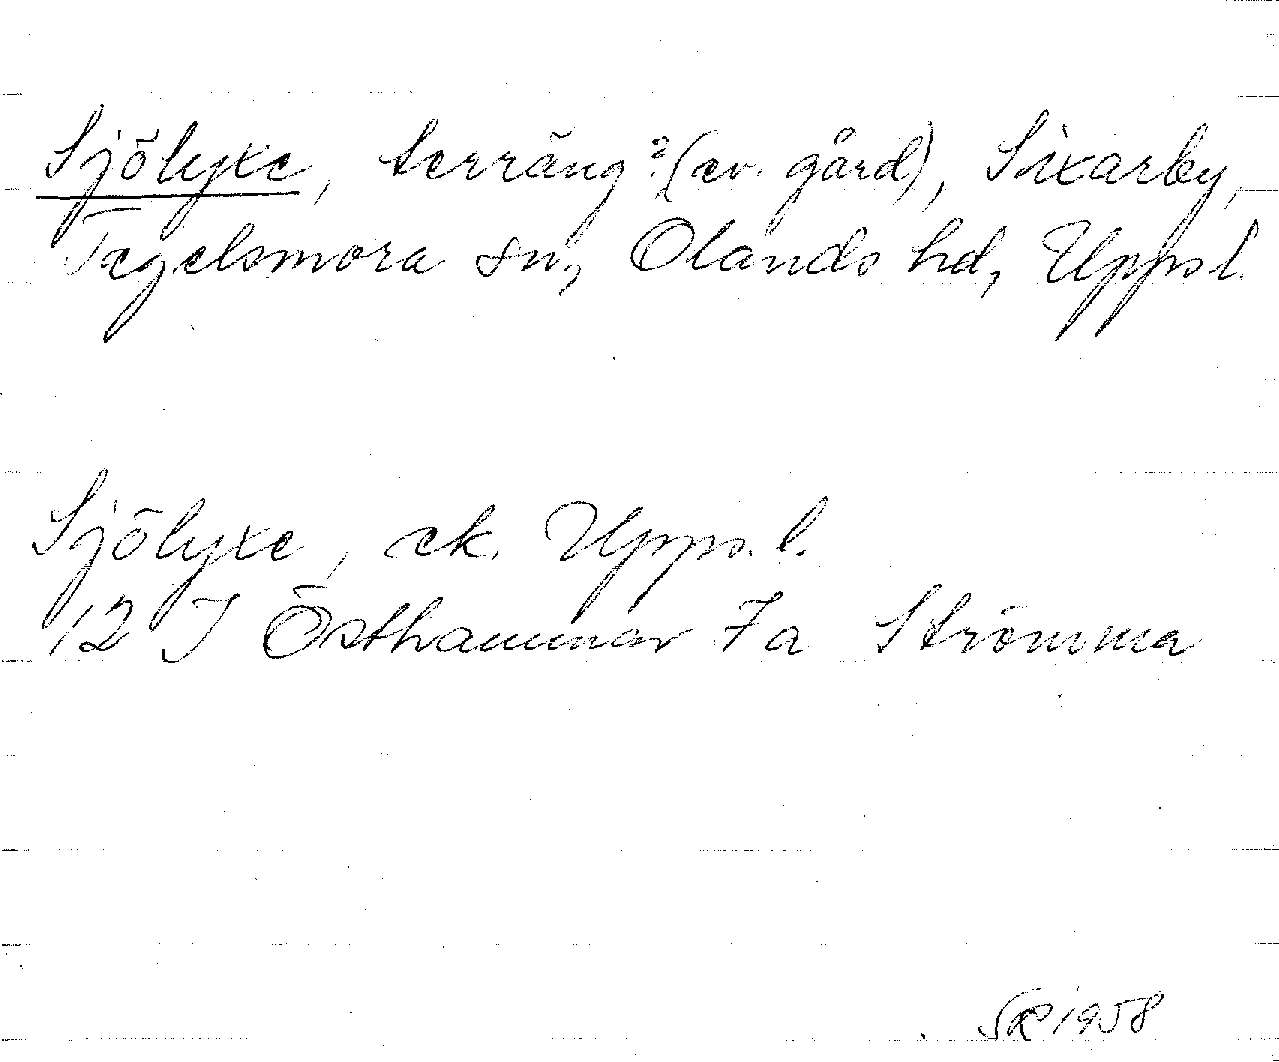 Sjölyxe, terräng? (ev. gård), Sixarby,
Tegelsmora sn, Olands hd, Uppsl.
Sjölyxe, ek. Upps. l.
12 I Östhammar 7a Strömma
1958